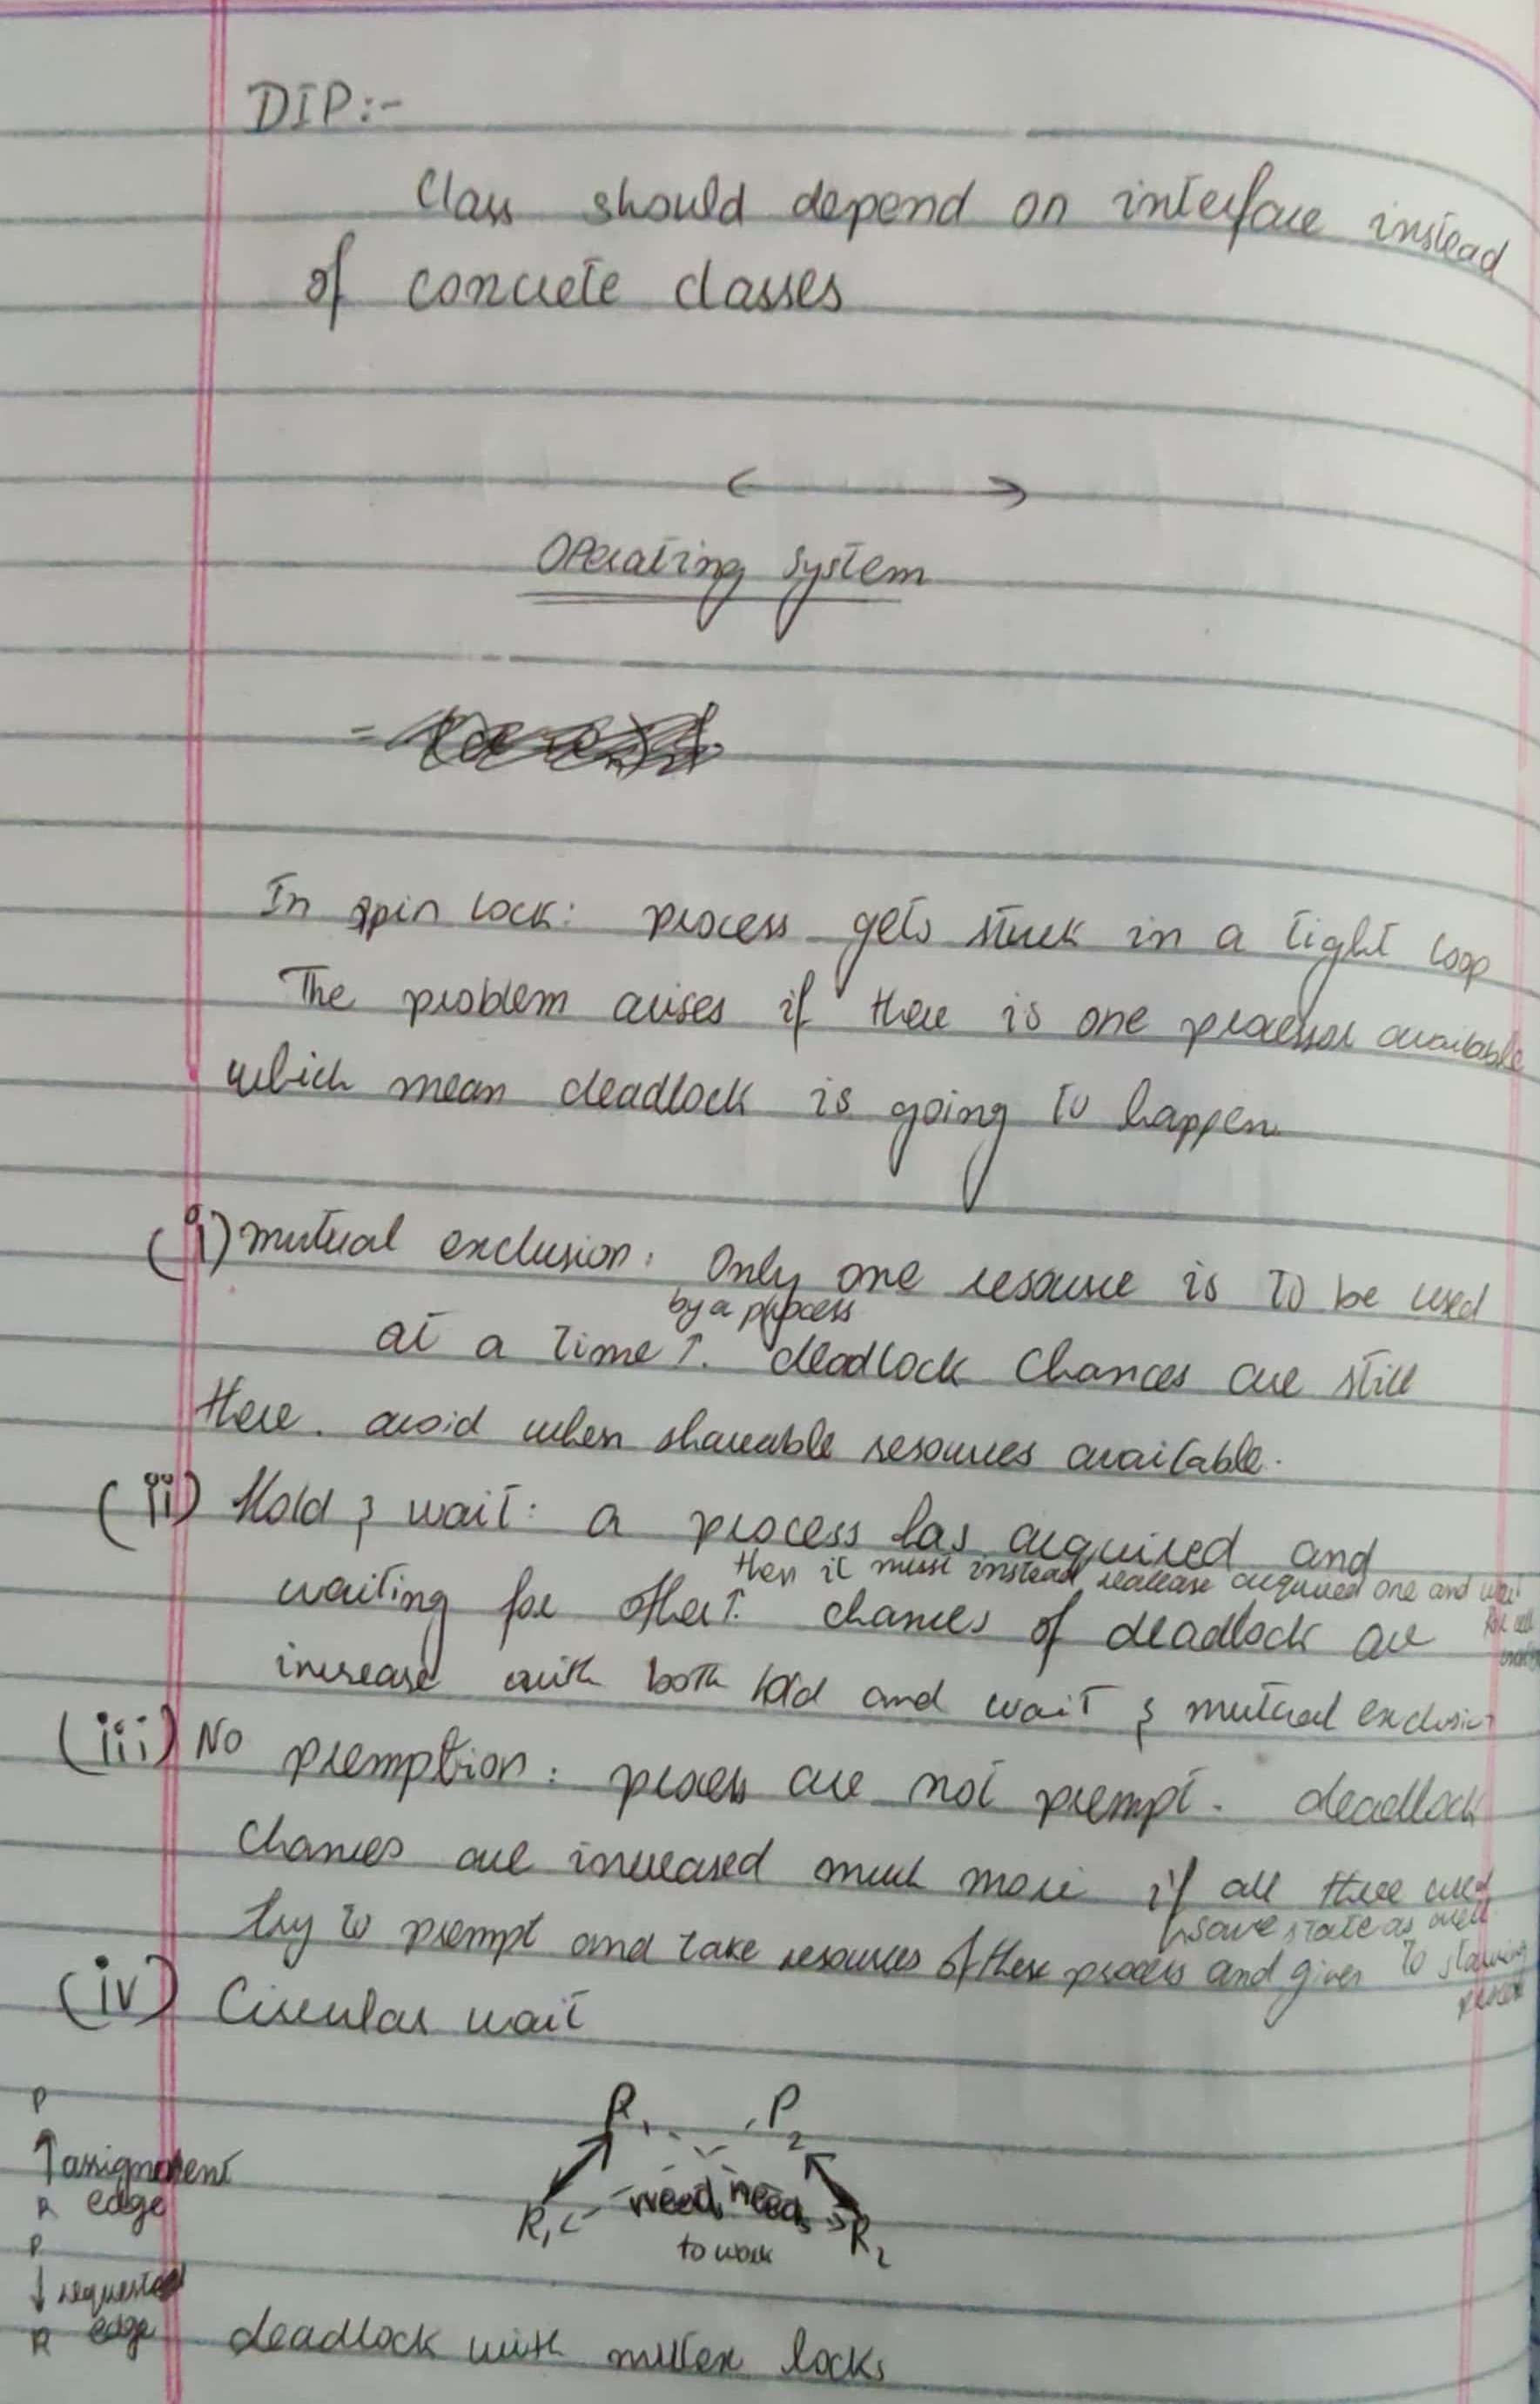 DIP:-
Class should depend on interface instead
of concrete classes
Operating System
In spin lock: process gets stuck in a tight loop
The problem arises if there is one processor available
which mean deadlock is going to happen
(i) mutual exclusion: Only one resource is to be used
by a process
at a time ↑. deadlock chances are still
there. avoid when shareable resources available.
(ii) Hold & wait: a process has acquired and
then it must instead realease acquired one and wait
waiting for other↑. chances of deadlock are
for all
increase with both hold and wait & mutual exclusion
(iii) No premption: process are not prempt. deadlock
chances are increased much more if all three used
↳ save state as well
try to prempt and take resources of these process and given to starving
process
(iv) Circular wait
P
↑ assignment
R edge
P
↓ requested
R edge
P1 P2
need, need,
R1 R2
to work
deadlock with mutex locks